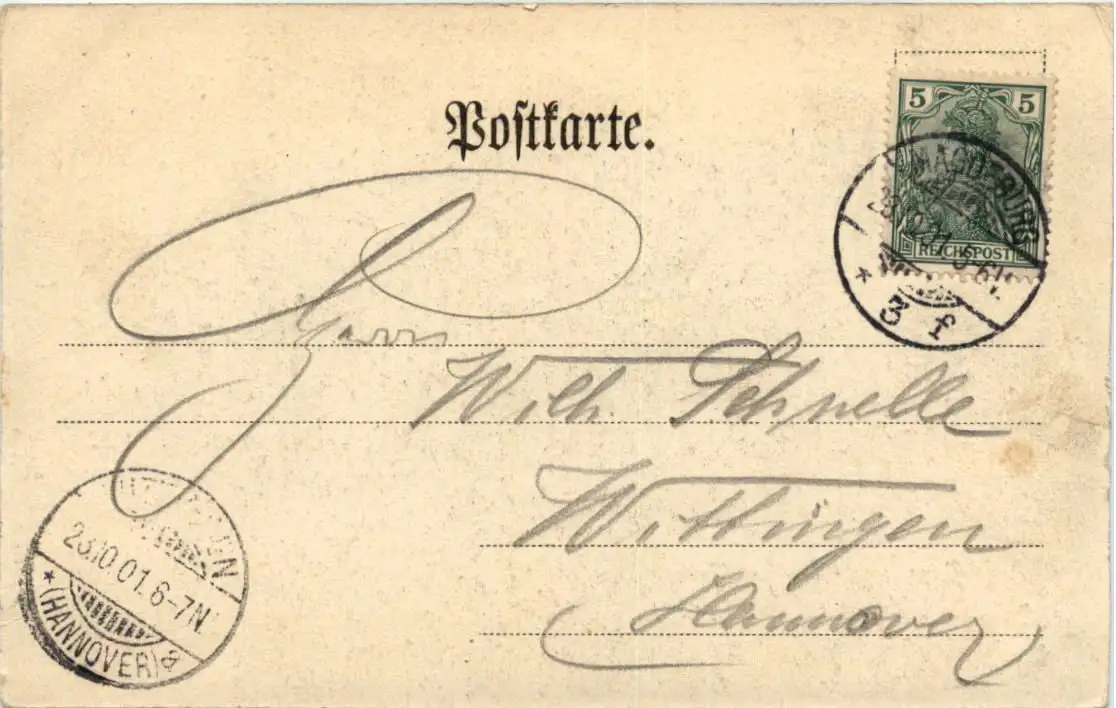 Postkarte.
5 5
REICHSPOST
MAGDEBURG
* 3 f
Herrn
Wilh. Schnelle
Wittingen
Hannover
WITTINGEN
23.10.01. 6-7N.
* (HANNOVER) a